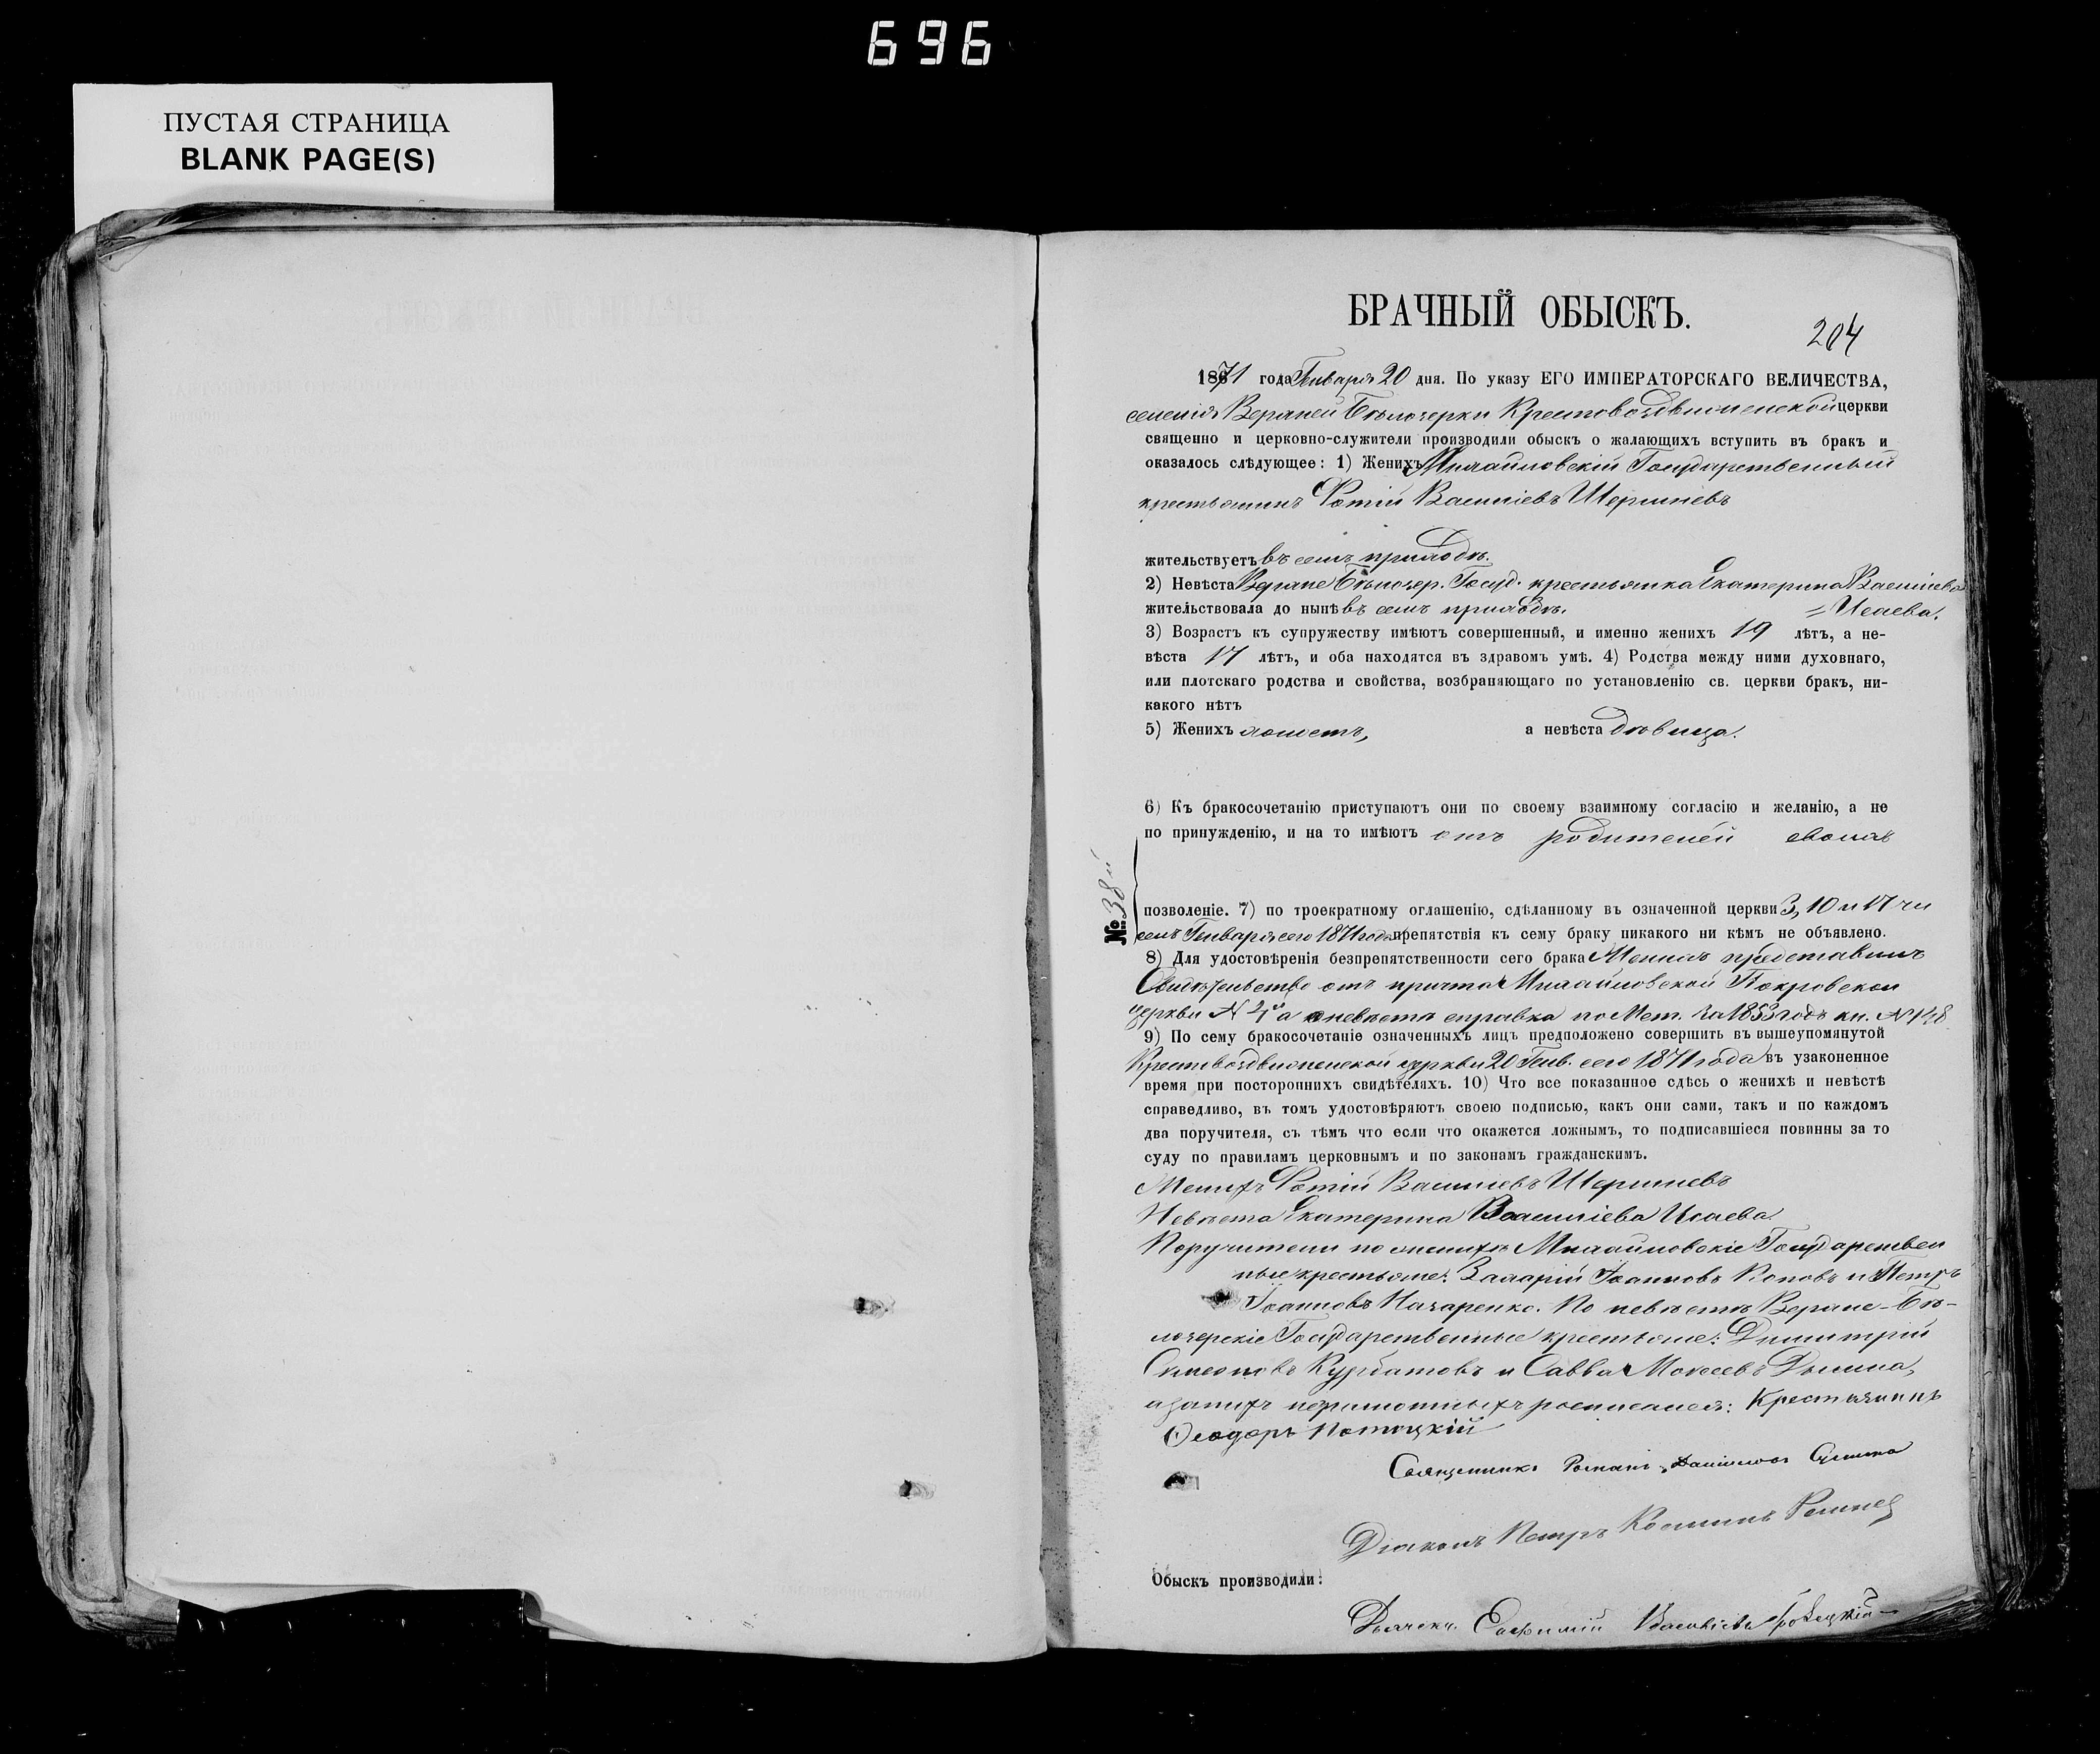 696
ПУСТАЯ СТРАНИЦА
BLANK PAGE(S)
БРАЧНЫЙ ОБЫСКЪ.
204
1871 года Генваря 20 дня. По указу ЕГО ИМПЕРАТОРСКАГО ВЕЛИЧЕСТВА,
селенія Верхней Бѣлозерки Крестовоздвиженской церкви
священно и церковно-служители производили обыскъ о жалающихъ вступить въ бракъ и
оказалось слѣдующее: 1) Женихъ Михайловскій Государственный
крестьянинъ Фотій Василіевъ
жительствуетъ въ семъ приходѣ.
2) Невѣста Верхне Бѣлозер. Госуд. крестьянка Екатерина Василіева
жительствовала до нынѣ въ семъ приходѣ. = Исаева.
3) Возрастъ къ супружеству имѣютъ совершенный, и именно женихъ 19 лѣтъ, а не-
вѣста 17 лѣтъ, и оба находятся въ здравомъ умѣ. 4) Родства между ними духовнаго,
или плотскаго родства и свойства, возбраняющаго по установленію св. церкви бракъ, ни-
какого нѣтъ
5) Женихъ холостъ, а невѣста дѣвица.
6) Къ бракосочетанію приступаютъ они по своему взаимному согласію и желанію, а не
по принужденію, и на то имѣютъ отъ родителей своихъ
№ 38й
позволеніе. 7) по троекратному оглашенію, сдѣланному въ означенной церкви 3, 10 и 17 чи
селъ Генваря сего 1871 года препятствія къ сему браку никакого ни кѣмъ не объявлено.
8) Для удостовѣренія безпрепятственности сего брака Женихъ представилъ
Свидѣтельство отъ причта Михайловской Покровской
церкви № а невѣста справка по Мет. за 1853 годъ кн. №
9) По сему бракосочетаніе означенныхъ лицъ предположено совершить въ вышеупомянутой
Крестовоздвиженской церкви 20 Генв. сего 1871 года въ узаконенное
время при постороннихъ свидѣтеляхъ. 10) Что все показанное сдѣсь о женихѣ и невѣстѣ
справедливо, въ томъ удостовѣряютъ своею подписью, какъ они сами, такъ и по каждомъ
два поручителя, съ тѣмъ что если что окажется ложнымъ, то подписавшіеся повинны за то
суду по правиламъ церковнымъ и по законамъ гражданскимъ.
Женихъ Фотій Василіевъ
Невѣста Екатерина Василіева Исаева
Поручители по женихѣ Михайловскіе Государствен
ные крестьяне: Захарій Іоанновъ Поповъ и Петръ
Іоанновъ Назаренко. По невѣстѣ Верхне-Бѣ-
лозерскіе Государственные крестьяне: Димитрій
Симеоновъ Курбатовъ и Савва Моисеевъ
а за нихъ неграмотныхъ росписался: Крестьянинъ
Ѳеодоръ Потоцкій
Священникъ Романъ
Діаконъ Петръ Косминъ
Обыскъ производили:
Дьячекъ Евфимій Василіевъ